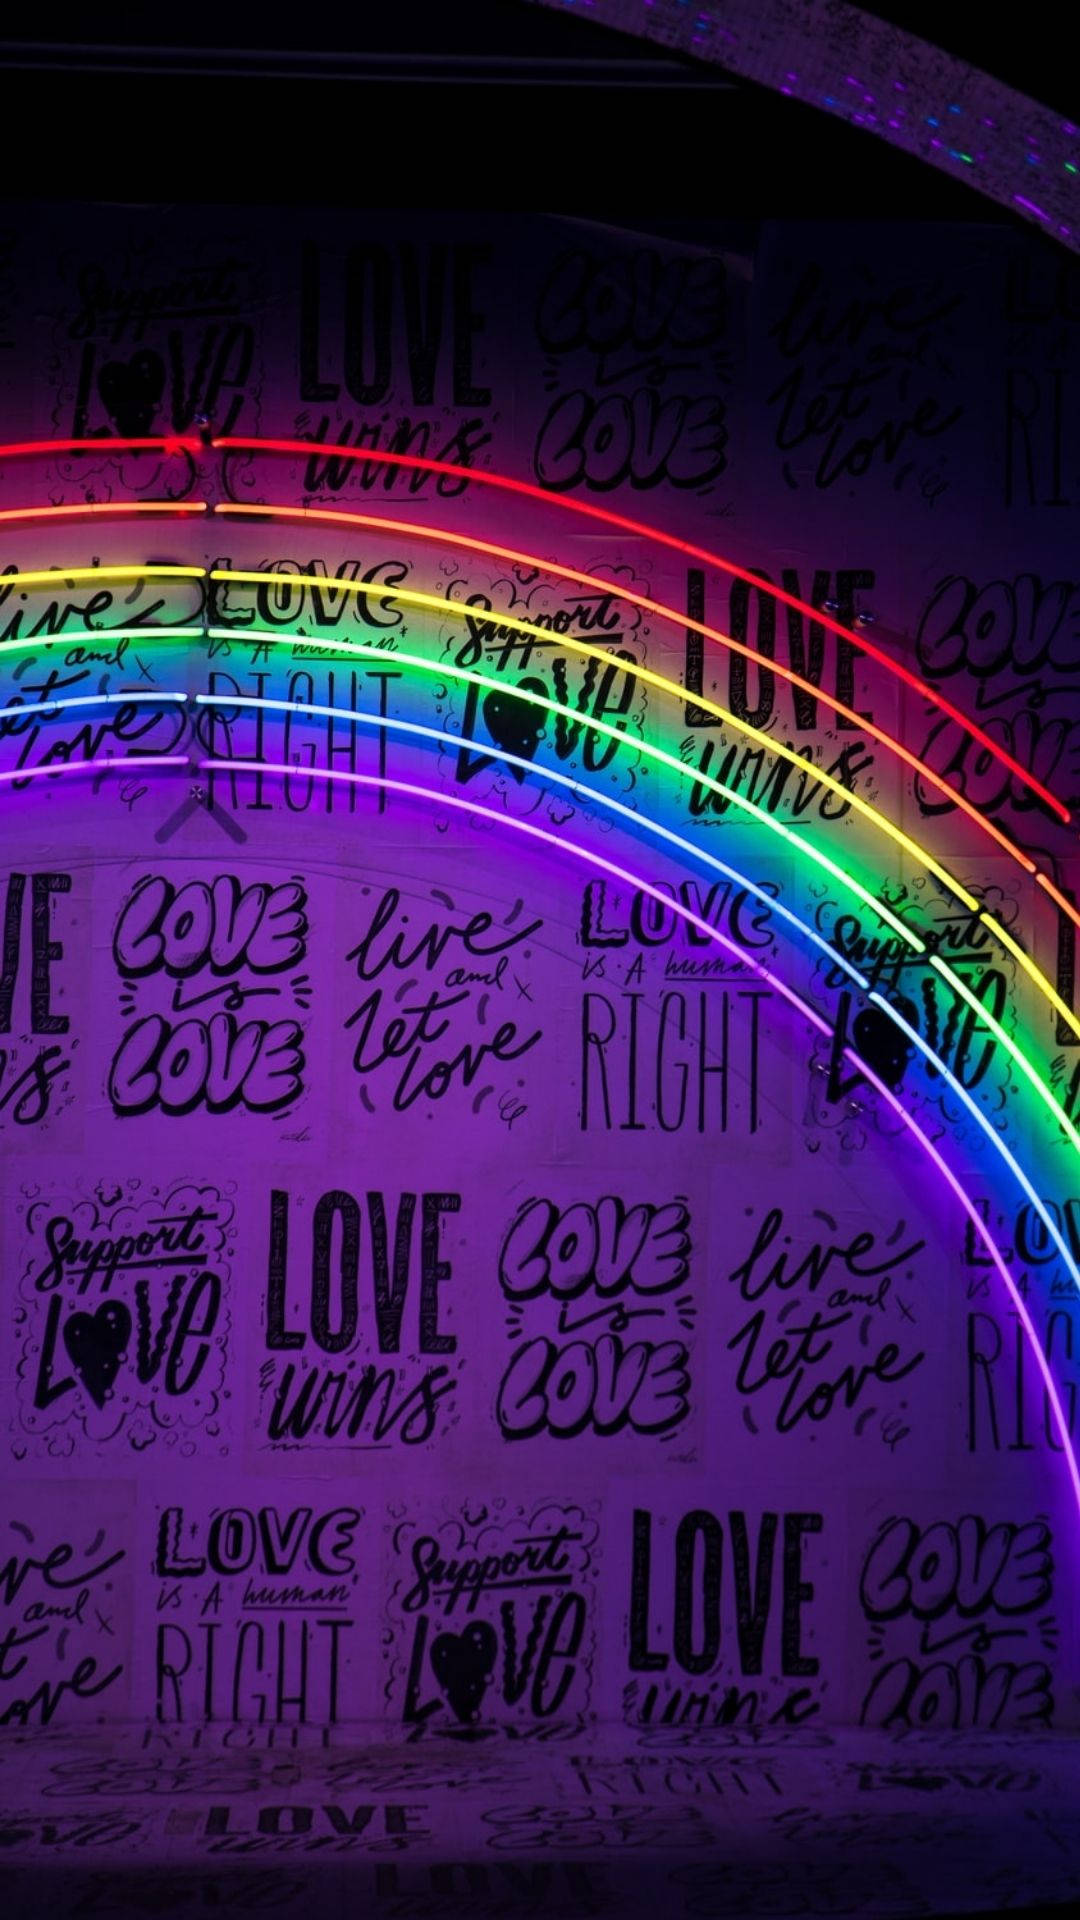 Support
LOVE
LOVE
wins
LOVE
is
LOVE
live
and
let
love
RI
live
and
let
love
LOVE
is A human
RIGHT
Support
LOVE
LOVE
wins
LOVE
is
LOVE
LOVE
is
LOVE
live
and
let
love
LOVE
is A human
RIGHT
Support
LOVE
Support
LOVE
LOVE
wins
LOVE
is
LOVE
live
and
let
love
LO
is A
RIG
and
LOVE
is A human
RIGHT
Support
LOVE
LOVE
wins
LOVE
is
LOVE
RIGHT
LOVE
LOVE
wins
LOVE